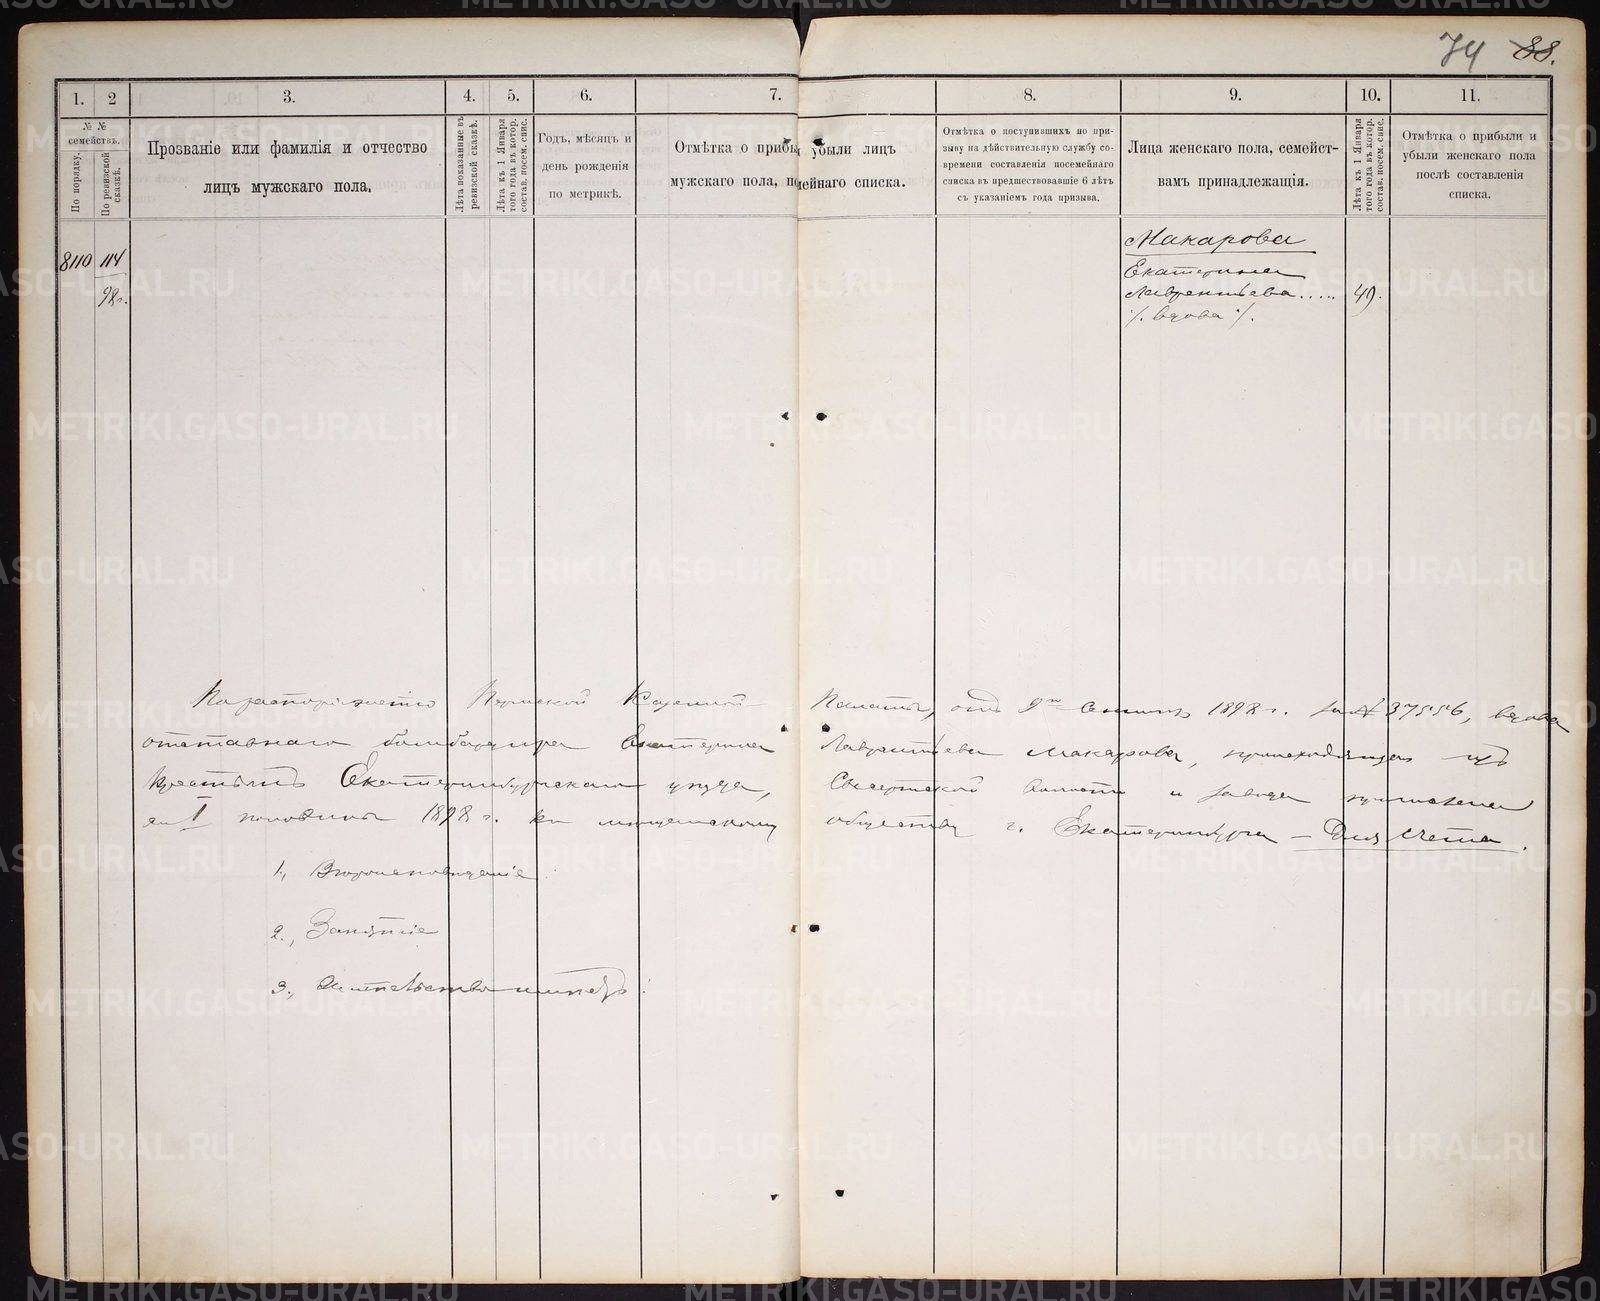 74 88.
1. 2 3. 4. 5. 6. 7. 8. 9. 10. 11.
№ № семействъ.
По порядку.
По ревизской сказкѣ.
Прозваніе или фамилія и отчество
лицъ мужскаго пола.
Лѣта показанные въ ревизской сказкѣ.
Лѣта къ 1 Января того года въ котор. состав. посем. спис.
Годъ, мѣсяцъ и
день рожденія
по метрикѣ.
Отмѣтка о прибы убыли лицъ
мужскаго пола, по мейнаго списка.
Отмѣтка о поступившихъ по при-
зыву на дѣйствительную службу со-
времени составленія посемейнаго
списка въ предшествовавшіе 6 лѣтъ
съ указаніемъ года призыва.
Лица женскаго пола, семейст-
вамъ принадлежащія.
Лѣта къ 1 Января того года въ котор. состав. посем. спис.
Отмѣтка о прибыли и
убыли женскаго пола
послѣ составленія
списка.
8110 114
98 г.
Макарова
Екатерина
Лаврентьева..... 49.
·/. вдова ·/.
По распоряженію Пермской Казенной Палаты, отъ 9го 1898 г. за № 37556, вдова
отставнаго бомбардира Екатерина Лаврентьева Макарова, происходящая изъ
крестьянъ Екатеринбургскаго уѣзда, Сысертской волости и завода причислена
съ 1 половины 1898 г. къ мѣщанскому обществу г. Екатеринбурга — Для счета.
1., Вѣроисповѣданіе
2., Занятіе
3., Жительство имѣетъ:
METRIKI.GASO-URAL.RU